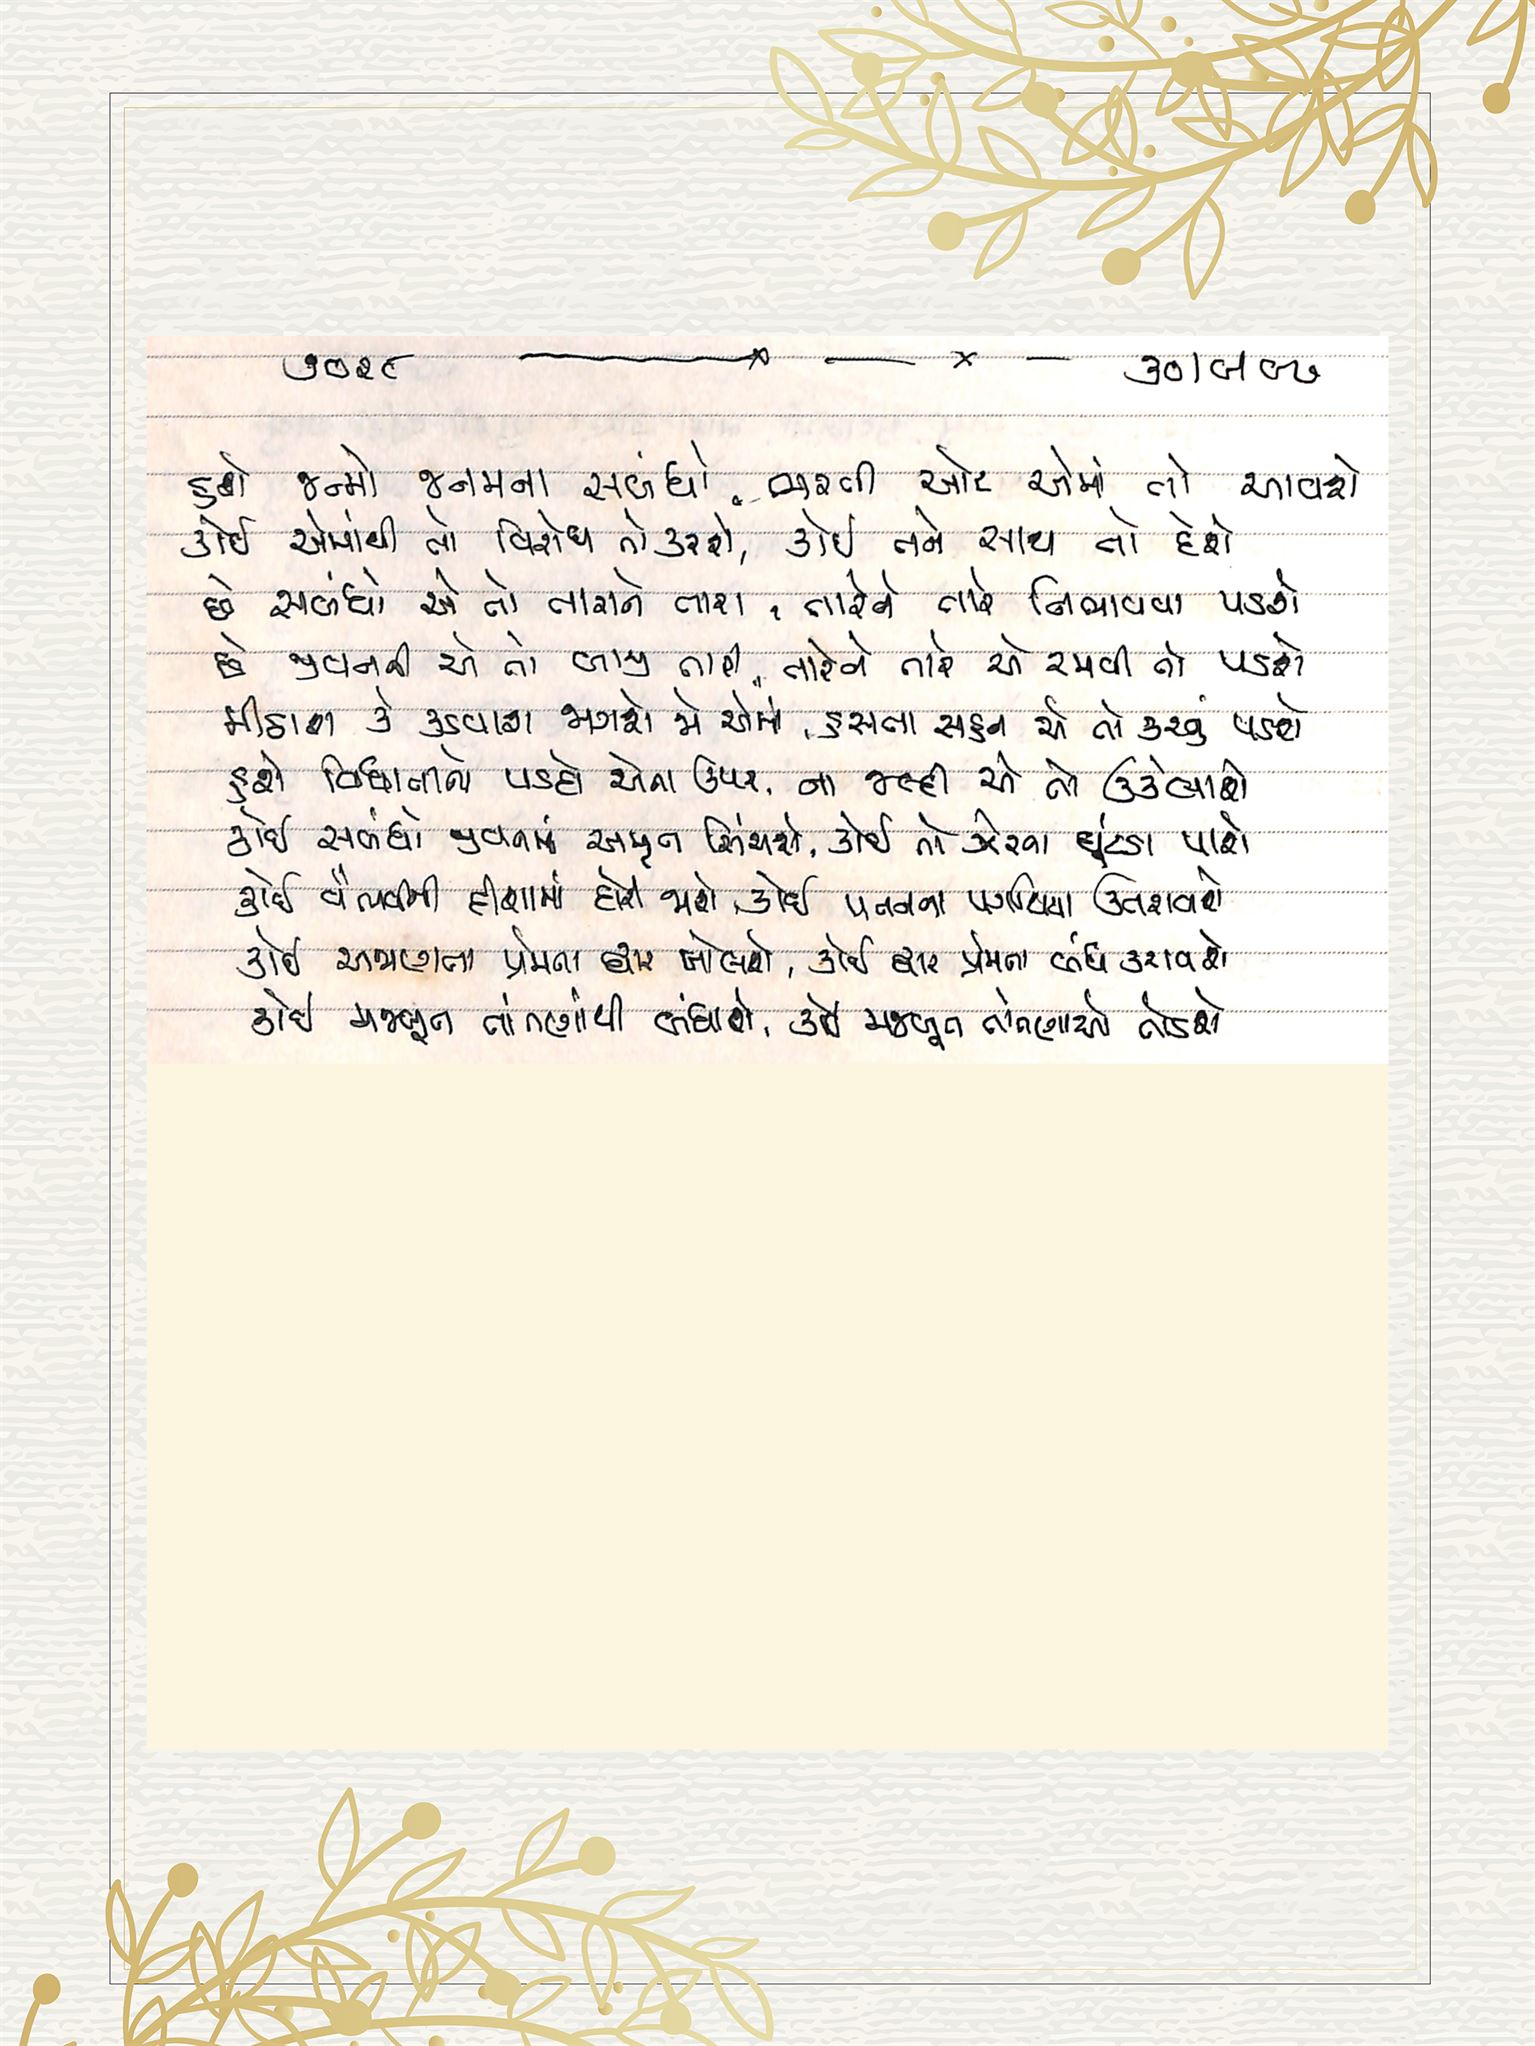 ૭૦૨૯ ——x — x — ૩૦/૯/૯૭
હશે જન્મો જનમના સબંધો, ભરતી ઓટ એમાં તો આવશે
કોઈ એમાંથી તો વિરોધ તો કરશે, કોઈ તને સાથ તો દેશે
છે સબંધો એ તો તારાને તારા, તારેને તારે નિભાવવા પડશે
છે જીવનની એ તો બાજી તારી, તારેને તારે એ રમવી તો પડશે
મીઠાશ કે કડવાશ જાગશે જે એમાં, હસતા સહન એ તો કરવું પડશે
હશે વિધાતાનો પડદો એના ઉપર, ના જલ્દી એ તો ઉકેલાશે
કોઈ સબંધો જીવનમાં અમૃત સિંચશે, કોઈ તો ઝેરના ઘૂંટડા પાશે
કોઈ વૈભવની દીશામાં દોરી જાશે, કોઈ પતનના પગથિયા ઉતરાવશે
કોઈ અજાણતા પ્રેમના દ્વાર ખોલશે, કોઈ દ્વાર પ્રેમના બંધ કરાવશે
કોઈ મજબૂત તાંતણાંથી બંધાશે, કોઈ મજબૂત તાંતણાઓ તોડશે